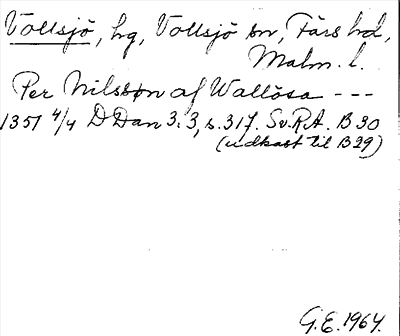 Vollsjö, hg, Vollsjö sn, Färs hd,
Malm. l.
Per Nilsson af Wallösa ---
1351 4/4 D Dan 3.3, s. 317. Sv.R.A. B 30
(udkast til B29)
G.E. 1964.